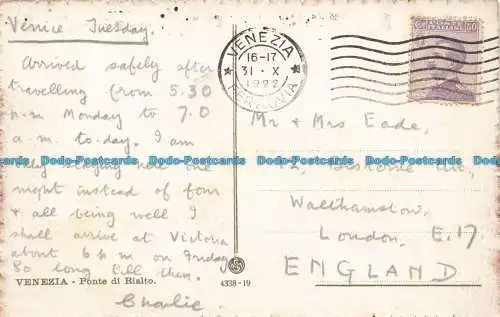 Venice Tuesday.
Arrived safely after
travelling from 5.30
p.m Monday to 7.0
a.m. to-day. I am
only staying here one
night instead of four
& all being well I
shall arrive at Victoria
about 6 p m on Friday
So long till then.
Charlie.
VENEZIA - Ponte di Rialto.
4338-19
VENEZIA
16-17
31 · X
1922
FERROVIA
50
Mr & Mrs Eade,
Walthamstow,
London, E.17
ENGLAND
Dodo-Postcards Dodo-Postcards Dodo-Postcards Dodo-Postcards